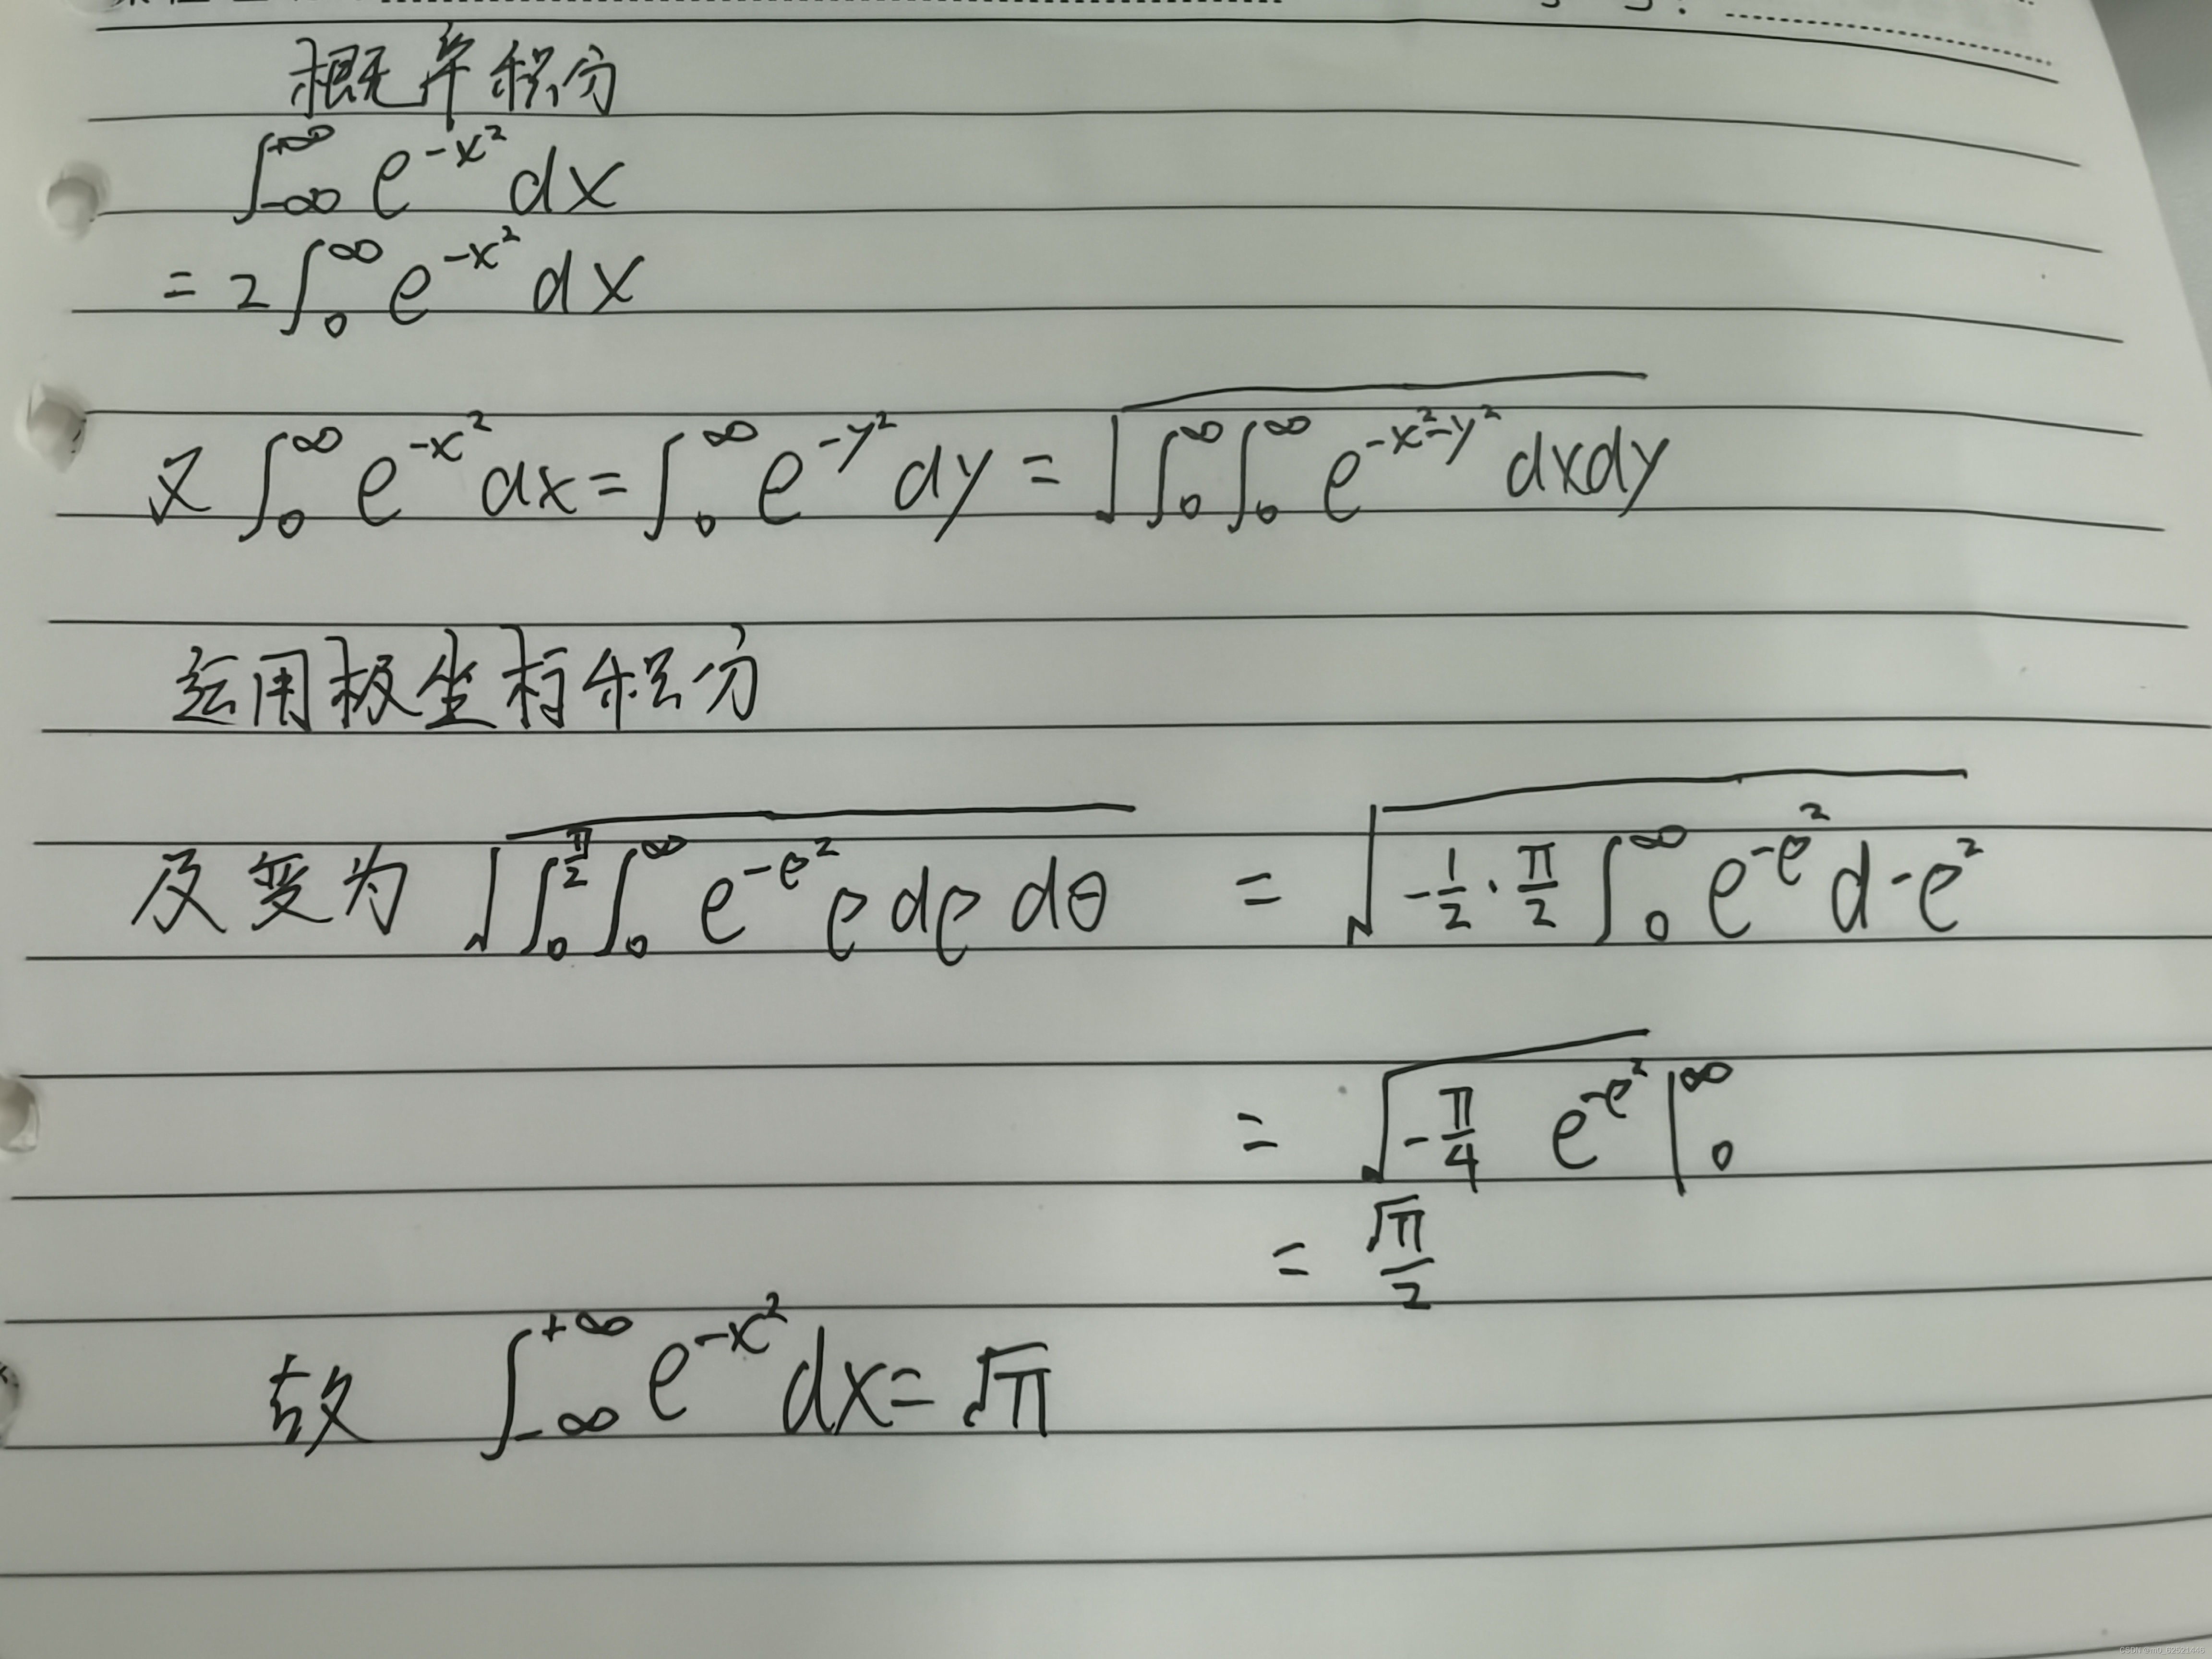 概率积分
∫_{-∞}^{+∞} e^{-x²} dx
= 2∫_0^∞ e^{-x²} dx
又 ∫_0^∞ e^{-x²} dx = ∫_0^∞ e^{-y²} dy = √(∫_0^∞ ∫_0^∞ e^{-x²-y²} dxdy)
运用极坐标积分
及变为 √(∫_0^{π/2} ∫_0^∞ e^{-ρ²} ρ dρ dθ) = √(-1/2 · π/2 ∫_0^∞ e^{-ρ²} d -ρ²)
= √(-π/4 e^{-ρ²}) |_0^∞
= √π/2
故 ∫_{-∞}^{+∞} e^{-x²} dx = √π